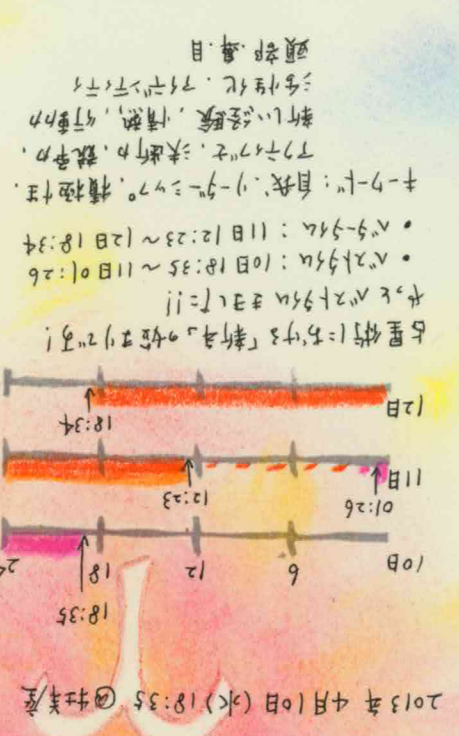 2013年4月10日(水)18:35 @牡羊座
18:35
10日 6 12 18 24
01:26 12:23
11日
18:34
12日
占星術における「新年」の始まりです!
やっとベストタイムきました!!
• ベストタイム:10日18:35〜11日01:26
• ベタータイム:11日12:23〜12日18:34
キーワード:自我、リーダーシップ、積極性、
アクティブさ、決断力、競争力、
新しい経験、情熱、行動力
活性化、アイデンティティ
頭部、目